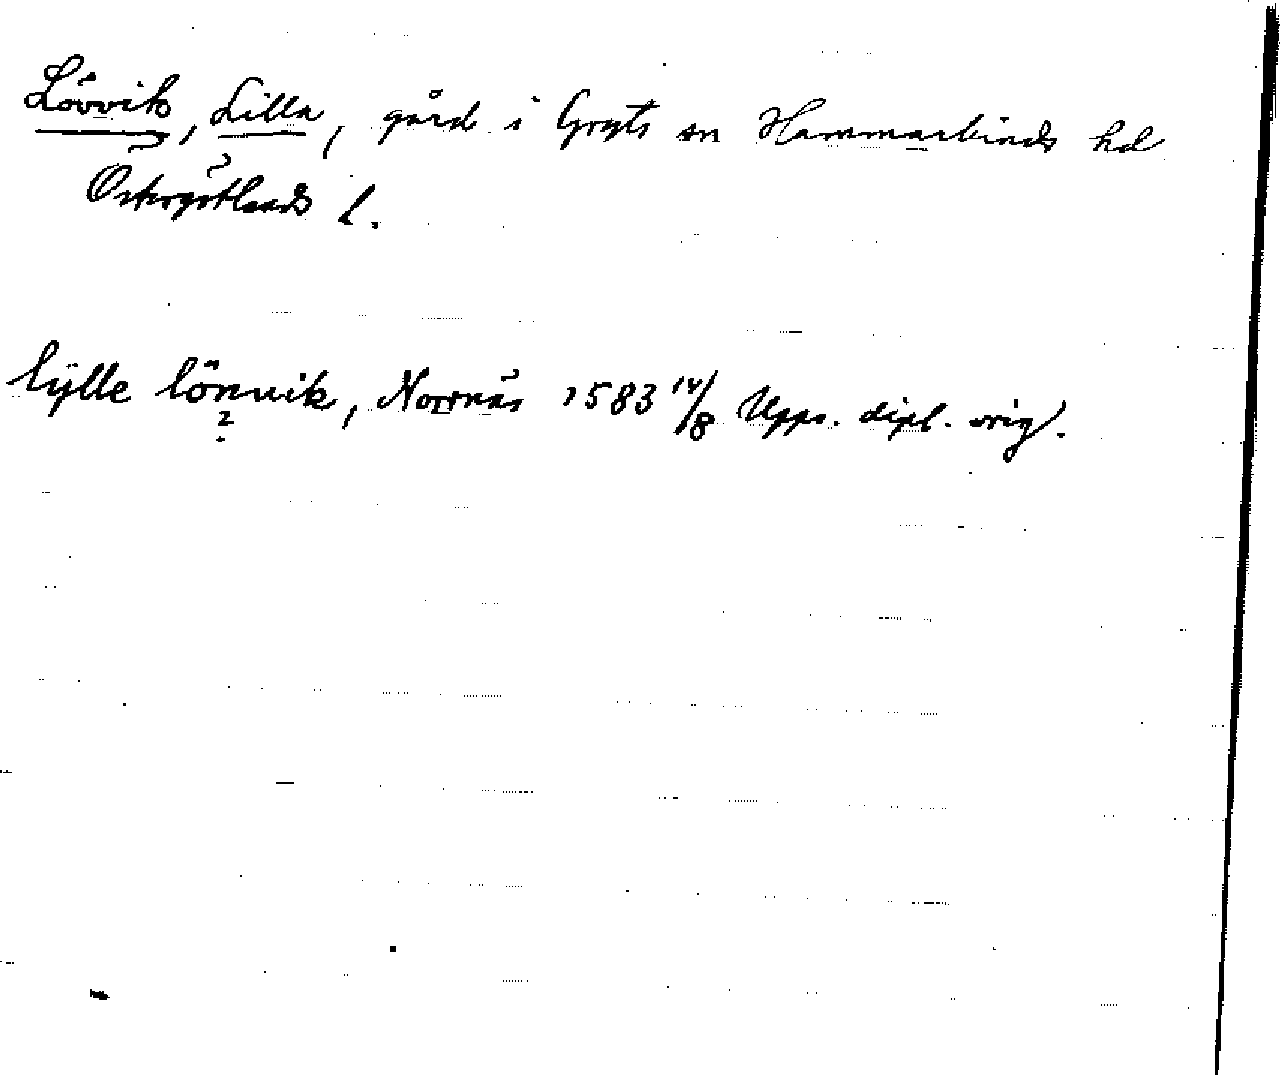 Lövvik, Lilla, gård i Gryts sn Hammarkinds hd
Östergötlands l.
lÿlle lönuik, Norrnäs 1583 14/8 Upps. dipl. orig.
?